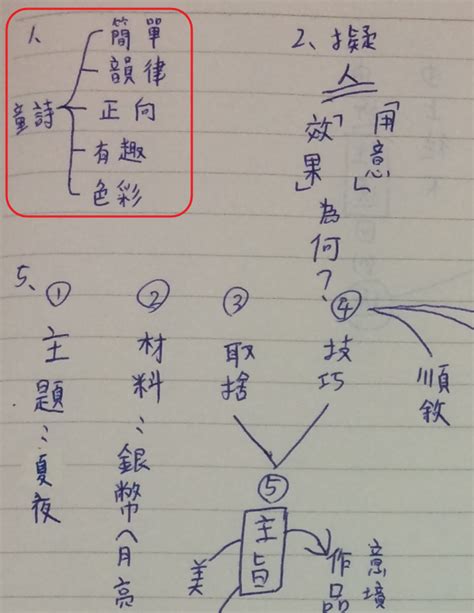 1、
童詩
簡單
韻律
正向
有趣
色彩
2、擬
人
「用意」
「效果」
為何?
5、
①
主題：夏夜
②
材料：銀幣(月亮
③
取捨
④
技巧
順敘
⑤
主旨
美
作品
意境